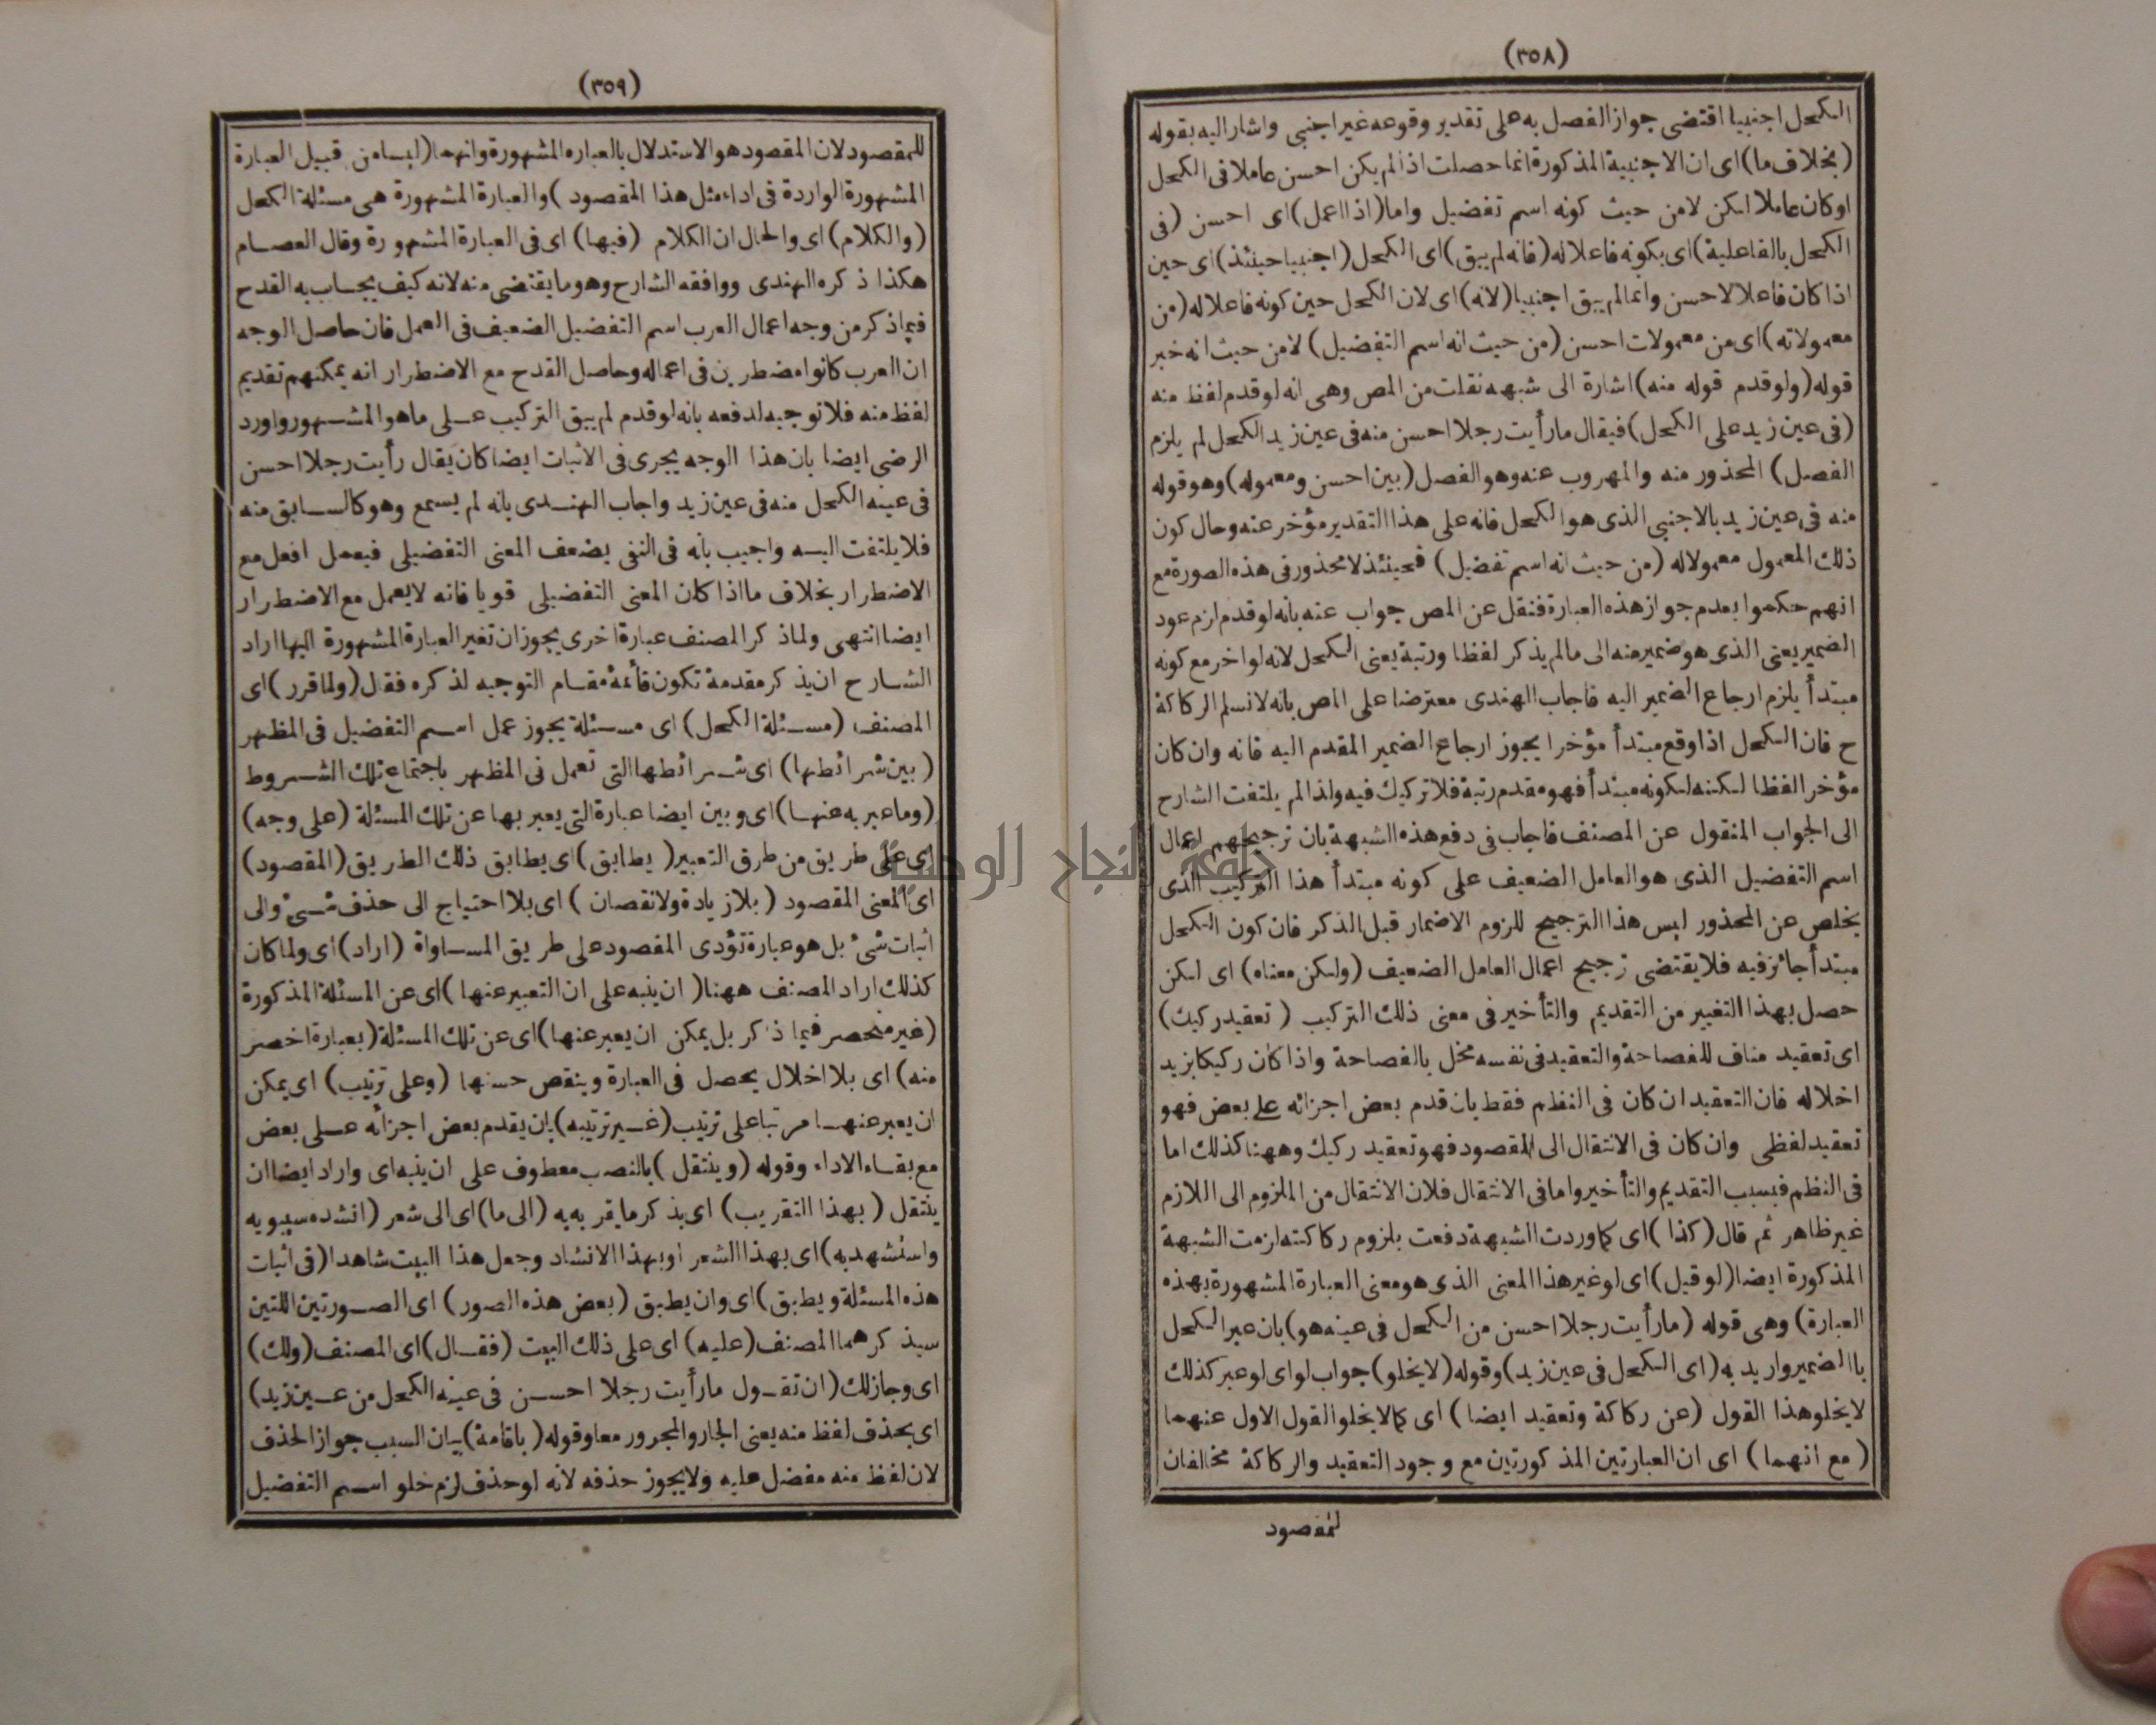 (٣٥٨)
الكحل اجنبيا اقتضى جواز الفصل به على تقدير وقوعه غير اجنبى واشار اليه بقوله
(بخلاف ما) اى ان الاجنبية المذكورة انما حصلت اذا لم يكن احسن عاملا فى الكحل
او كان عاملا لكن لا من حيث كونه اسم تفضيل واما (اذا اعمل) اى احسن (فى
الكحل بالفاعلية) اى بكونه فاعلا له (فانه لم يبق) اى الكحل (اجنبيا حينئذ) اى حين
اذا كان فاعلا لاحسن وانما لم يبق اجنبيا (لانه) اى لان الكحل حين كونه فاعلا له (من
معمولاته) اى من معمولات احسن (من حيث انه اسم التفضيل) لا من حيث انه خبر
قوله (ولو قدم قوله منه) اشارة الى شبهه نقلت من المص وهى انه لو قدم لفظ منه
(فى عين زيد على الكحل) فيقال ما رأيت رجلا احسن منه فى عين زيد الكحل لم يلزم
الفصل) المحذور منه والمهروب عنه وهو الفصل (بين احسن ومعموله) وهو قوله
منه فى عين زيد بالاجنبى الذى هو الكحل فانه على هذا التقدير مؤخر عنه وحال كون
ذلك المعمول معمولا له (من حيث انه اسم تفضيل) فحينئذ لا محذور فى هذه الصورة مع
انهم حكموا بعدم جواز هذه العبارة فنقل عن المص جواب عنه بانه لو قدم لزم عود
الضمير يعنى الذى هو ضمير منه الى ما لم يذكر لفظا ورتبة يعنى الكحل لانه لو اخر مع كونه
مبتدأ يلزم ارجاع الضمير اليه فاجاب الهندى معترضا على المص بانه لا نسلم الركاكة
ح فان الكحل اذا وقع مبتدأ مؤخرا يجوز ارجاع الضمير المقدم اليه فانه وان كان
مؤخرا لفظا لكنه لكونه مبتدأ فهو مقدم رتبة فلا تركيك فيه ولذا لم يلتفت الشارح
الى الجواب المنقول عن المصنف فاجاب فى دفع هذه الشبهة بان ترجيحهم اعمال
اسم التفضيل الذى هو العامل الضعيف على كونه مبتدأ هذا التركيب الذى
يخلص عن المحذور ليس هذا الترجيح للزوم الاضمار قبل الذكر فان كون الكحل
مبتدأ جائز فيه فلا يقتضى ترجيح اعمال العامل الضعيف (ولكن معناه) اى لكن
حصل بهذا التغيير من التقديم والتأخير فى معنى ذلك التركيب (تعقيد ركيك)
اى تعقيد مناف للفصاحة والتعقيد فى نفسه مخل بالفصاحة واذا كان ركيكا يزيد
اخلاله فان التعقيد ان كان فى النظم فقط بان قدم بعض اجزائه على بعض فهو
تعقيد لفظى وان كان فى الانتقال الى المقصود فهو تعقيد ركيك وههنا كذلك اما
فى النظم فبسبب التقديم والتأخير واما فى الانتقال فلان الانتقال من الملزوم الى اللازم
غير ظاهر ثم قال (كذا) اى كما وردت الشبهة دفعت بلزوم ركاكته لزمت الشبهة
المذكورة ايضا (لو قيل) اى لو غير هذا المعنى الذى هو معنى العبارة المشهورة بهذه
العبارة) وهى قوله (ما رأيت رجلا احسن من الكحل فى عينه هو) بان عبر الكحل
با الضمير واريد به (اى الكحل فى عين زيد) وقوله (لا يخلو) جواب لو اى لو عبر كذلك
لا يخلو هذا القول (عن ركاكة وتعقيد ايضا) اى كما لا يخلو القول الاول عنهما
(مع انهما) اى ان العبارتين المذكورتين مع وجود التعقيد والركاكة مخالفان
للمقصود
(٣٥٩)
للمقصود لان المقصود هو الاستدلال بالعباره المشهورة وانهما (ليسا من قبيل العبارة
المشهورة الواردة فى اداء مثل هذا المقصود) والعبارة المشهورة هى مسئلة الكحل
(والكلام) اى والحال ان الكلام (فيها) اى فى العبارة المشهورة وقال العصام
هكذا ذكره الهندى ووافقه الشارح وهو ما يقتضى منه لانه كيف يجاب به القدح
فيما ذكر من وجه اعمال العرب اسم التفضيل الضعيف فى العمل فان حاصل الوجه
ان العرب كانوا مضطرين فى اعماله وحاصل القدح مع الاضطرار انه يمكنهم تقديم
لفظ منه فلا توجيه لدفعه بانه لو قدم لم يبق التركيب على ما هو المشهور واورد
الرضى ايضا بان هذا الوجه يجرى فى الاثبات ايضا كان يقال رأيت رجلا احسن
فى عينه الكحل منه فى عين زيد واجاب الهندى بانه لم يسمع وهو كالسابق منه
فلا يلتفت اليه واجيب بانه فى النفى يضعف المعنى التفضيلى فيعمل افعل مع
الاضطرار بخلاف ما اذا كان المعنى التفضيلى قويا فانه لا يعمل مع الاضطرار
ايضا انتهى ولما ذكر المصنف عبارة اخرى يجوز ان تغير العبارة المشهورة اليها اراد
الشارح ان يذكر مقدمة تكون قائمة مقام التوجيه لذكره فقال (ولما قرر) اى
المصنف (مسئلة الكحل) اى مسئلة يجوز عمل اسم التفضيل فى المظهر
(بين شرائطها) اى شرائطها التى تعمل فى المظهر باجتماع تلك الشروط
(وما عبر به عنها) اى وبين ايضا عبارة التى يعبر بها عن تلك المسئلة (على وجه)
اى على طريق من طرق التعبير (يطابق) اى يطابق ذلك الطريق (المقصود)
اى المعنى المقصود (بلا زيادة ولا نقصان) اى بلا احتياج الى حذف شئ والى
اثبات شئ بل هو عبارة تؤدى المقصود على طريق المساواة (اراد) اى ولما كان
كذلك اراد المصنف ههنا (ان ينبه على ان التعبير عنها) اى عن المسئلة المذكورة
(غير منحصر فيما ذكر بل يمكن ان يعبر عنها) اى عن تلك المسئلة (بعبارة اخصر
منه) اى بلا اخلال يحصل فى العبارة وينقص حسنها (وعلى ترتيب) اى يمكن
ان يعبر عنها مرتبا على ترتيب (غير ترتيبه) بان يقدم بعض اجزائه على بعض
مع بقاء الاداء وقوله (وينتقل) بالنصب معطوف على ان ينبه اى واراد ايضا ان
ينتقل (بهذا التقريب) اى بذكر ما يقر به به (الى ما) اى الى شعر (انشده سيبويه
واستشهد به) اى بهذا الشعر او بهذا الانشاد وجعل هذا البيت شاهدا (فى اثبات
هذه المسئلة ويطبق) اى وان يطبق (بعض هذه الصور) اى الصورتين اللتين
سيذكرهما المصنف (عليه) اى على ذلك البيت (فقال) اى المصنف (ولك)
اى وجاز لك (ان تقول ما رأيت رجلا احسن فى عينه الكحل من عين زيد)
اى بحذف لفظ منه يعنى الجار والمجرور معا وقوله (باقامة) بيان السبب جواز الحذف
لان لفظ منه مفضل عليه ولا يجوز حذفه لانه لو حذف لزم خلو اسم التفضيل
جامعة النجاح الوطنية